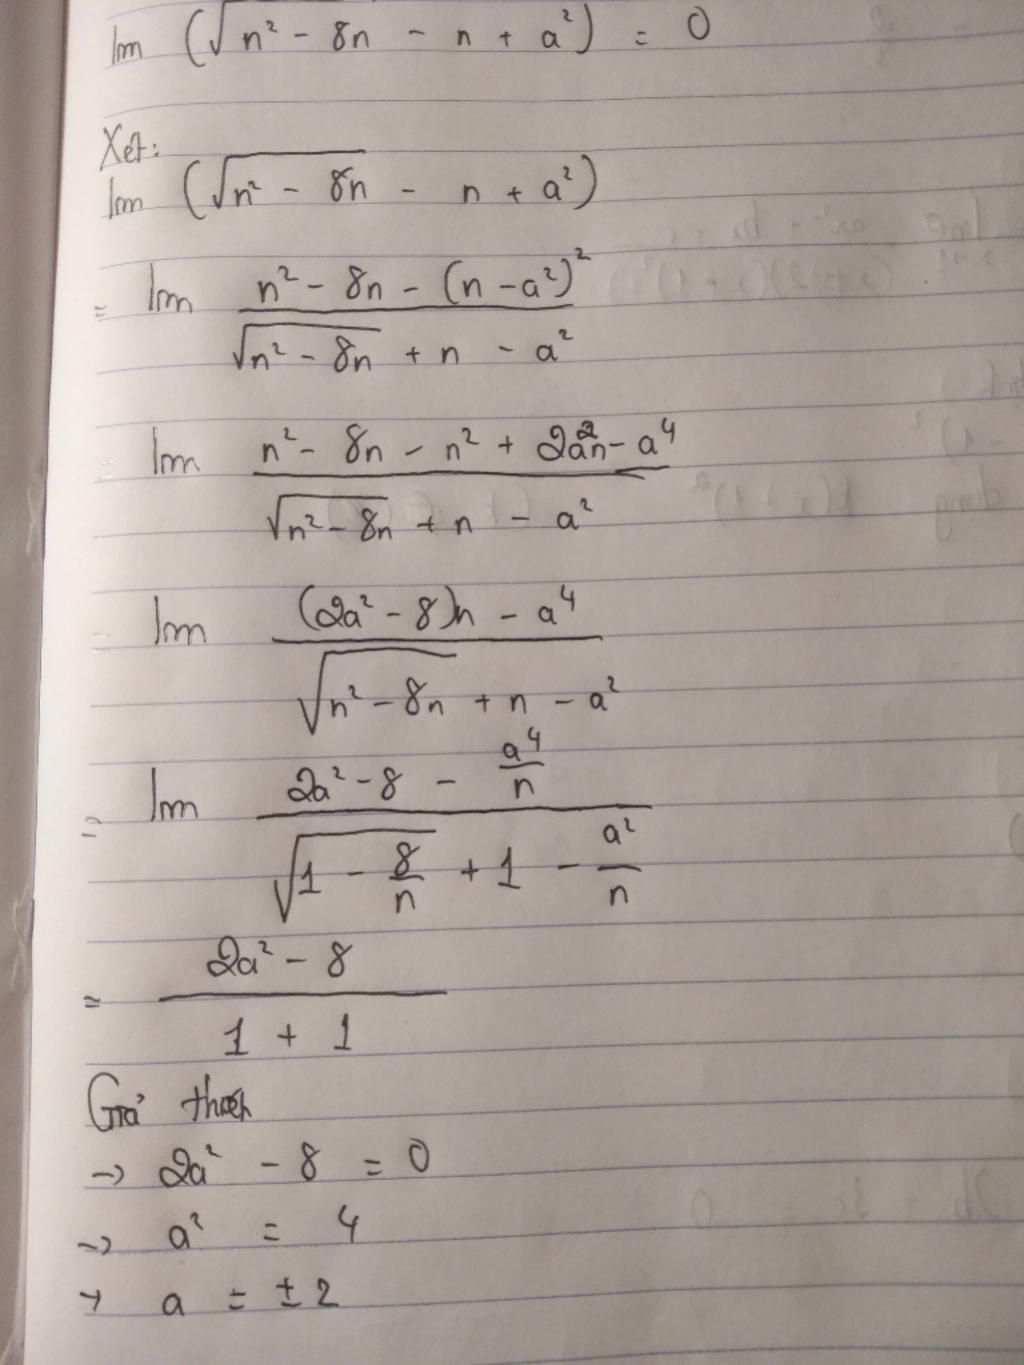 lim (√(n² - 8n) - n + a²) = 0
Xét:
lim (√(n² - 8n) - n + a²)
= lim (n² - 8n - (n - a²)²) / (√(n² - 8n) + n - a²)
lim (n² - 8n - n² + 2a²n - a⁴) / (√(n² - 8n) + n - a²)
= lim ((2a² - 8)n - a⁴) / (√(n² - 8n) + n - a²)
= lim (2a² - 8 - a⁴/n) / (√(1 - 8/n) + 1 - a²/n)
= (2a² - 8) / (1 + 1)
Giả thiết
→ 2a² - 8 = 0
→ a² = 4
→ a = ±2